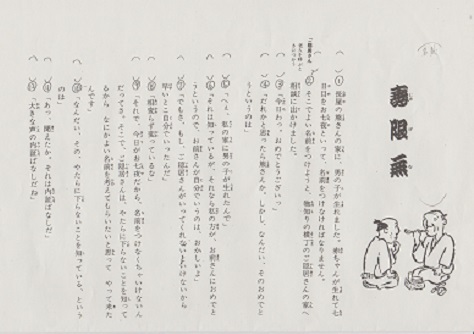 寿限無
① 長屋の熊さんの家に、男の子が生れました。赤ちゃんが生れて七
日目をお七夜といって、名前をつけなければなりません。
② そこでよい名前をつけようと、物知りの横丁のご隠居さんの家へ
相談に出かけました。
③「今日わ、おめでとうござい」
④「だれかと思ったら熊さんか。しかし、なんだい、そのおめでと
うというのは」
⑤「へえ、私の家に男の子が生れたんで」
「それは知っているが、それなら私の方が、お前さんにおめでと
うというので、お前さんが自分でいうのは、おかしいよ」
「でもさ、もし、ご隠居さんがいってくれないといけないから
早いとこ自分でいったんだ」
「相変らず変っているな」
「それで、今日がお七夜だから、名前をつけなくちゃいけないん
だってさ。そこで、ご隠居さんは、やたらに下らないことを知って
るから、なにかよい名前を考えてもらいたいと思って、やって来た
んです」
「なんだい、その、やたらに下らないことを知っている、という
のは」
「あっ、聞えたか。それは内証ばなしだ」
「大きな声の内証ばなしだね」